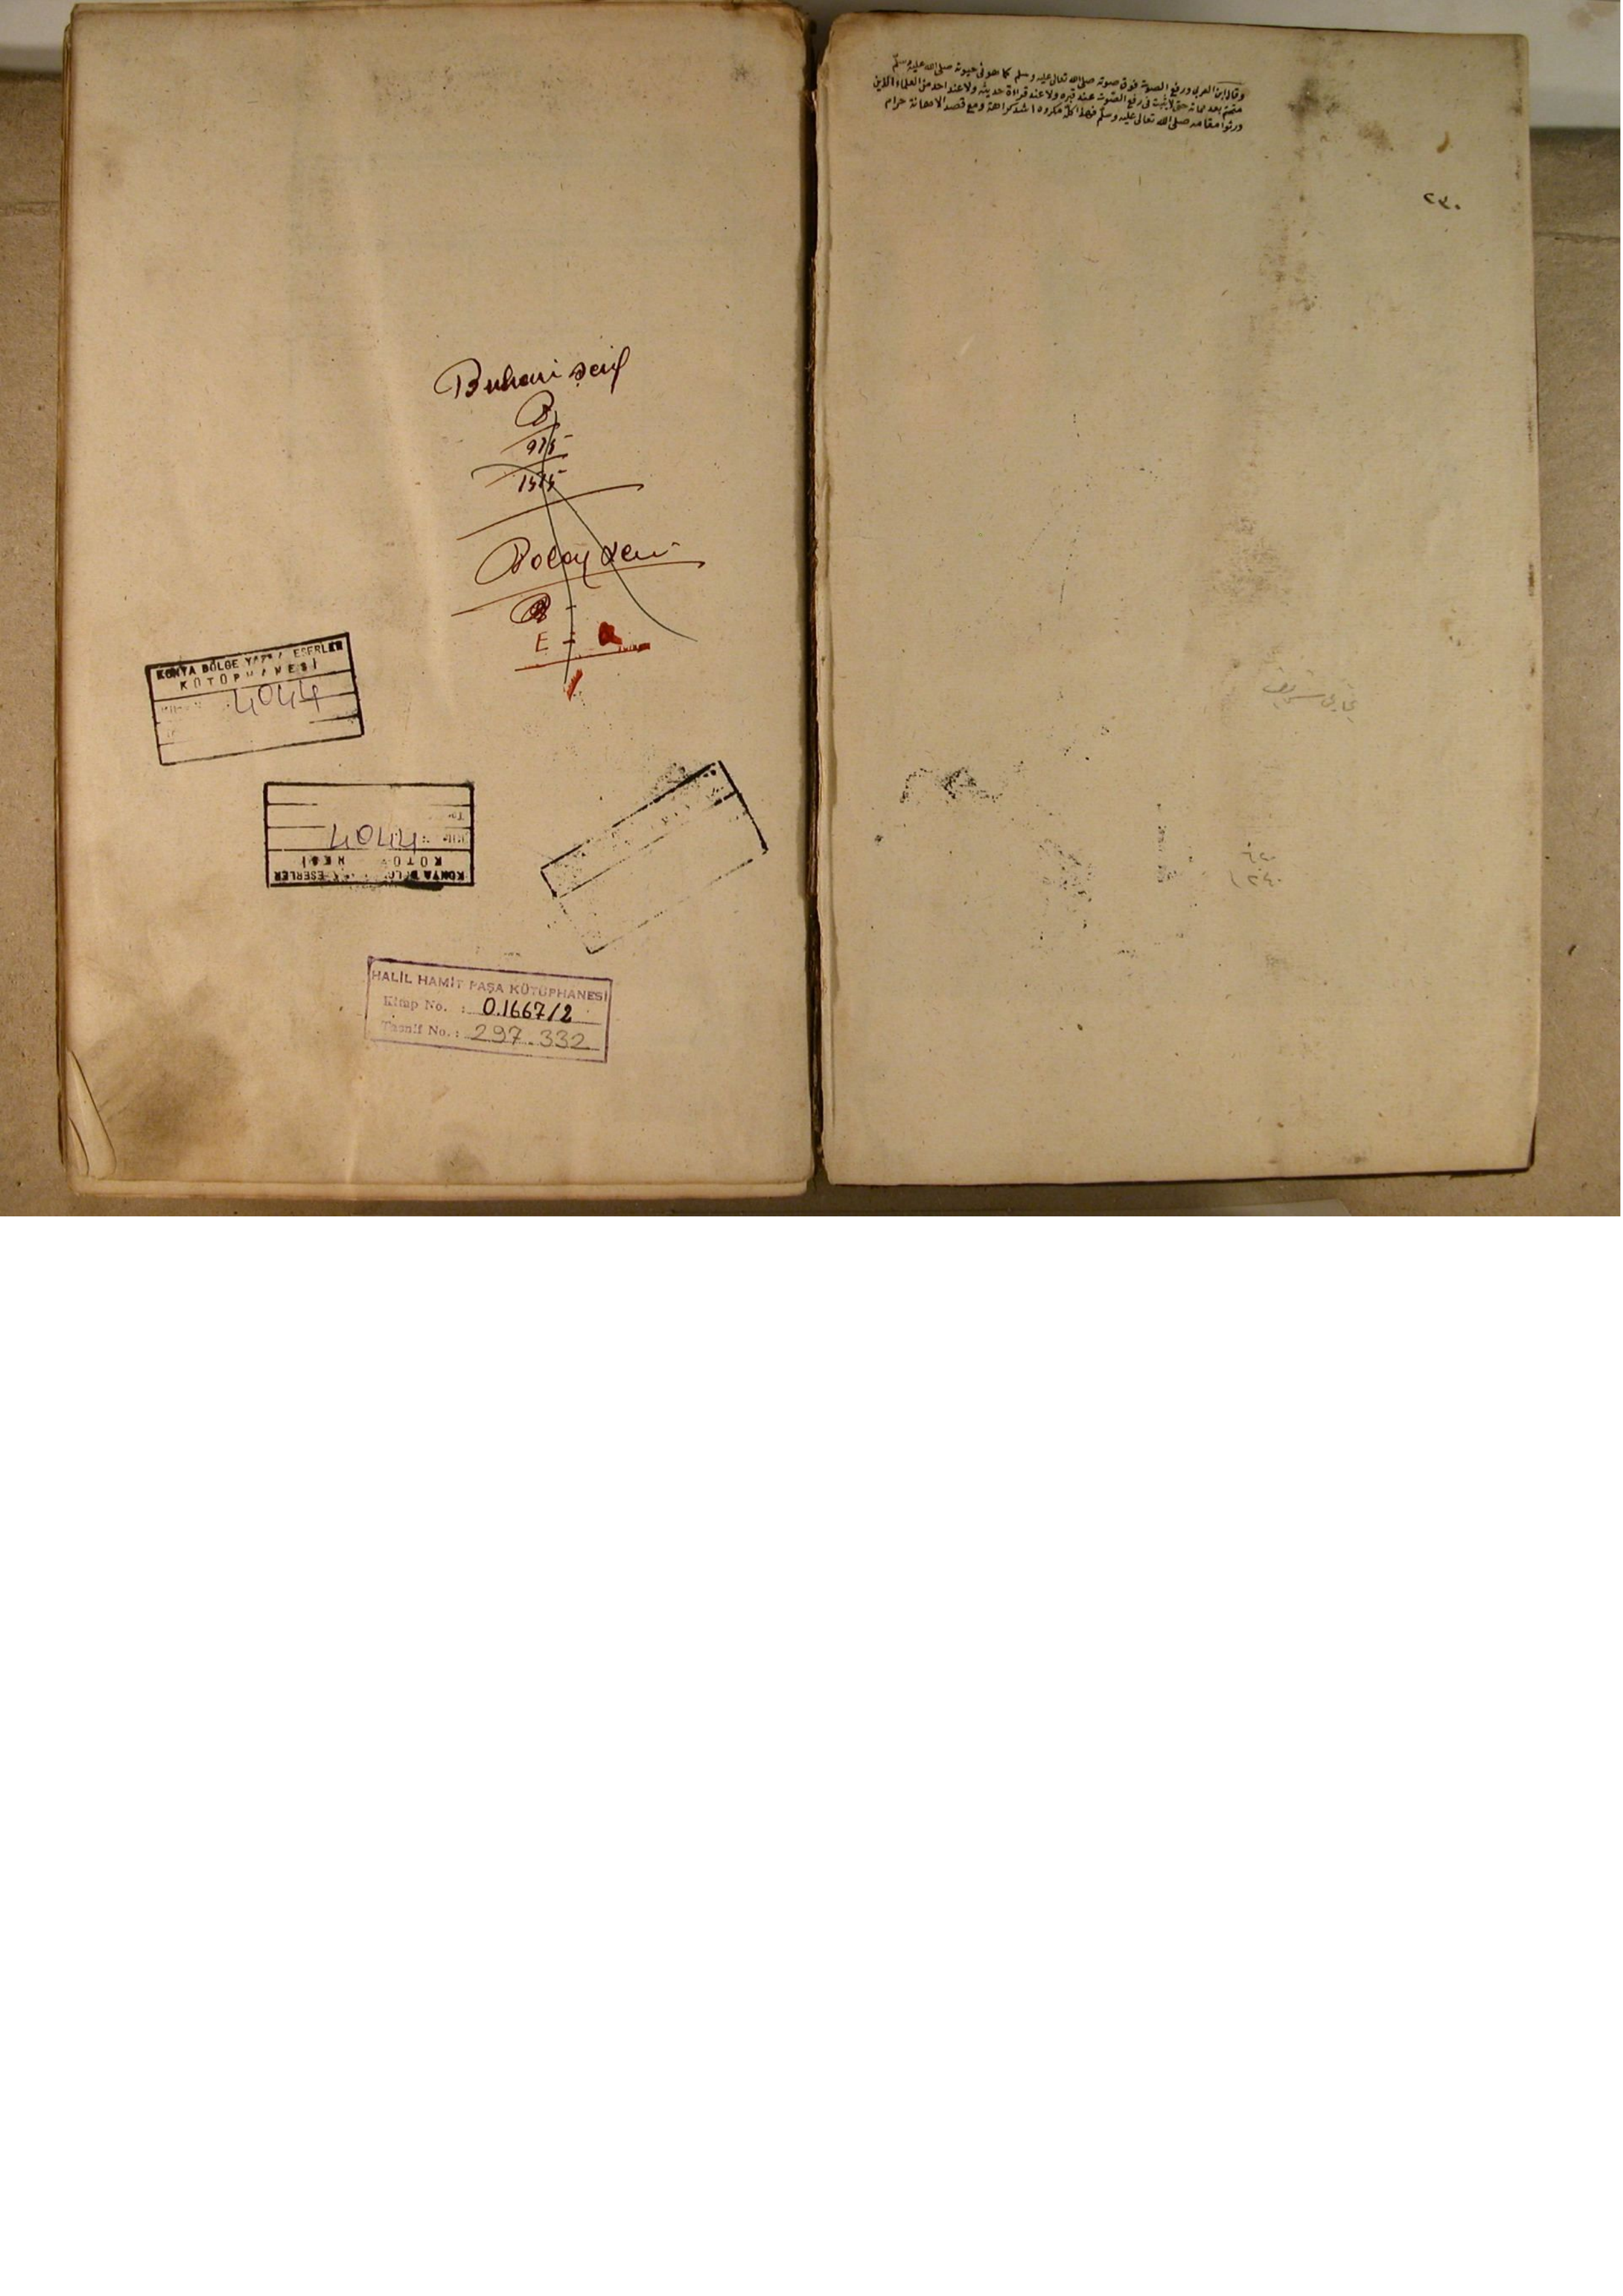 وقال ابن العربى ورفع الصوت فوق صوته صلى الله تعالى عليه وسلم كما هو فى حيوته صلى الله عليه وسلم
بعد مماته حتى لا يثبت فى رفع الصوت عند قبره ولا عند قراءة حديثه ولا عند احد من العلماء الذين
ورثوا مقامه صلى الله تعالى عليه وسلم فهذا كله مكروه اشد كراهة ومع قصد الاهانة حرام
٢٣٠
بخارى شريف
Buhari şerif
B
975
1575
E =
KONYA BÖLGE YAZMA ESERLER
KÜTÜPHANESİ
4044
4044
KÜTÜ HESİ
KONYA BÖLG ESERLER
HALİL HAMİT PAŞA KÜTÜPHANESİ
Kitap No. : 0.1667/2
Tasnif No. : 297.332